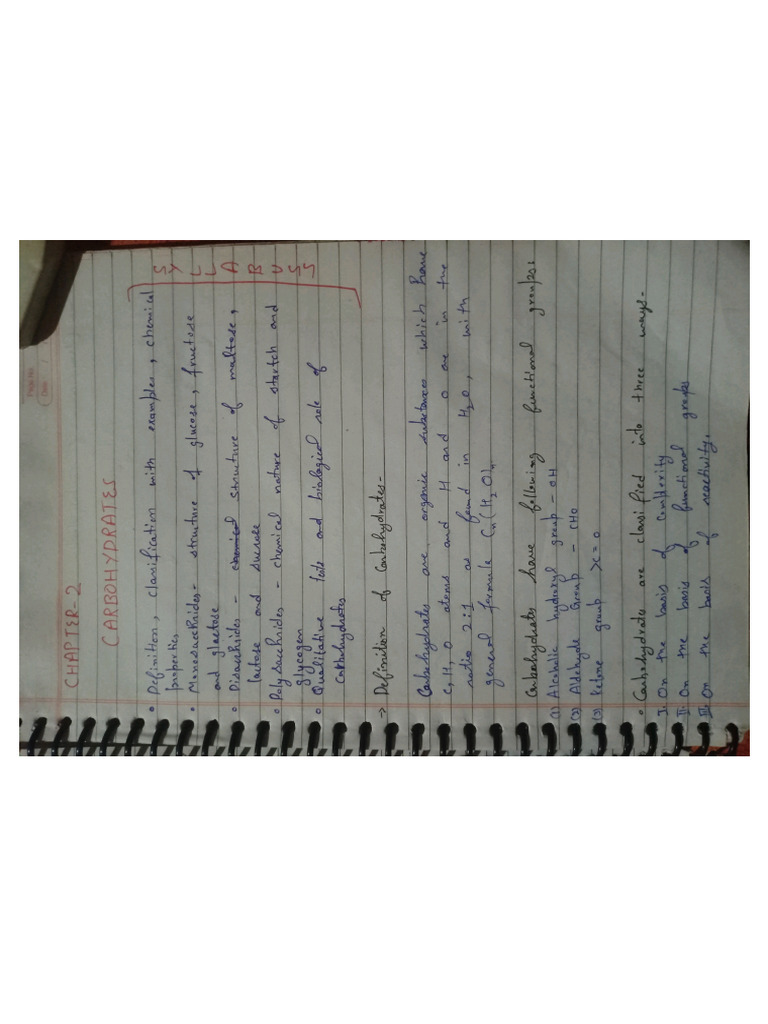 Page No.
Date
CHAPTER-2
CARBOHYDRATES
• Definition, classification with examples, chemical
properties
• Monosaccharides- structure of glucose, fructose
and galactose
• Disaccharides - chemical structure of maltose,
lactose and sucrose
• Polysaccharides - chemical nature of startch and
glycogen
• Qualitative tests and biological role of
carbohydrates
SYLLABUSS
→ Definition of Carbohydrates-
Carbohydrates are organic substances which have
C, H, O atoms and H and O are in the
ratio 2:1 as found in H2O, with
general formula Cn(H2O)n
Carbohydrates have following functional groups:
(1) Alcoholic hydroxyl group - OH
(2) Aldehyde Group - CHO
(3) ketone group >C=O
• Carbohydrates are classified into three ways-
I. On the basis of complexity
II. On the basis of functional groups
III. On the basis of reactivity.